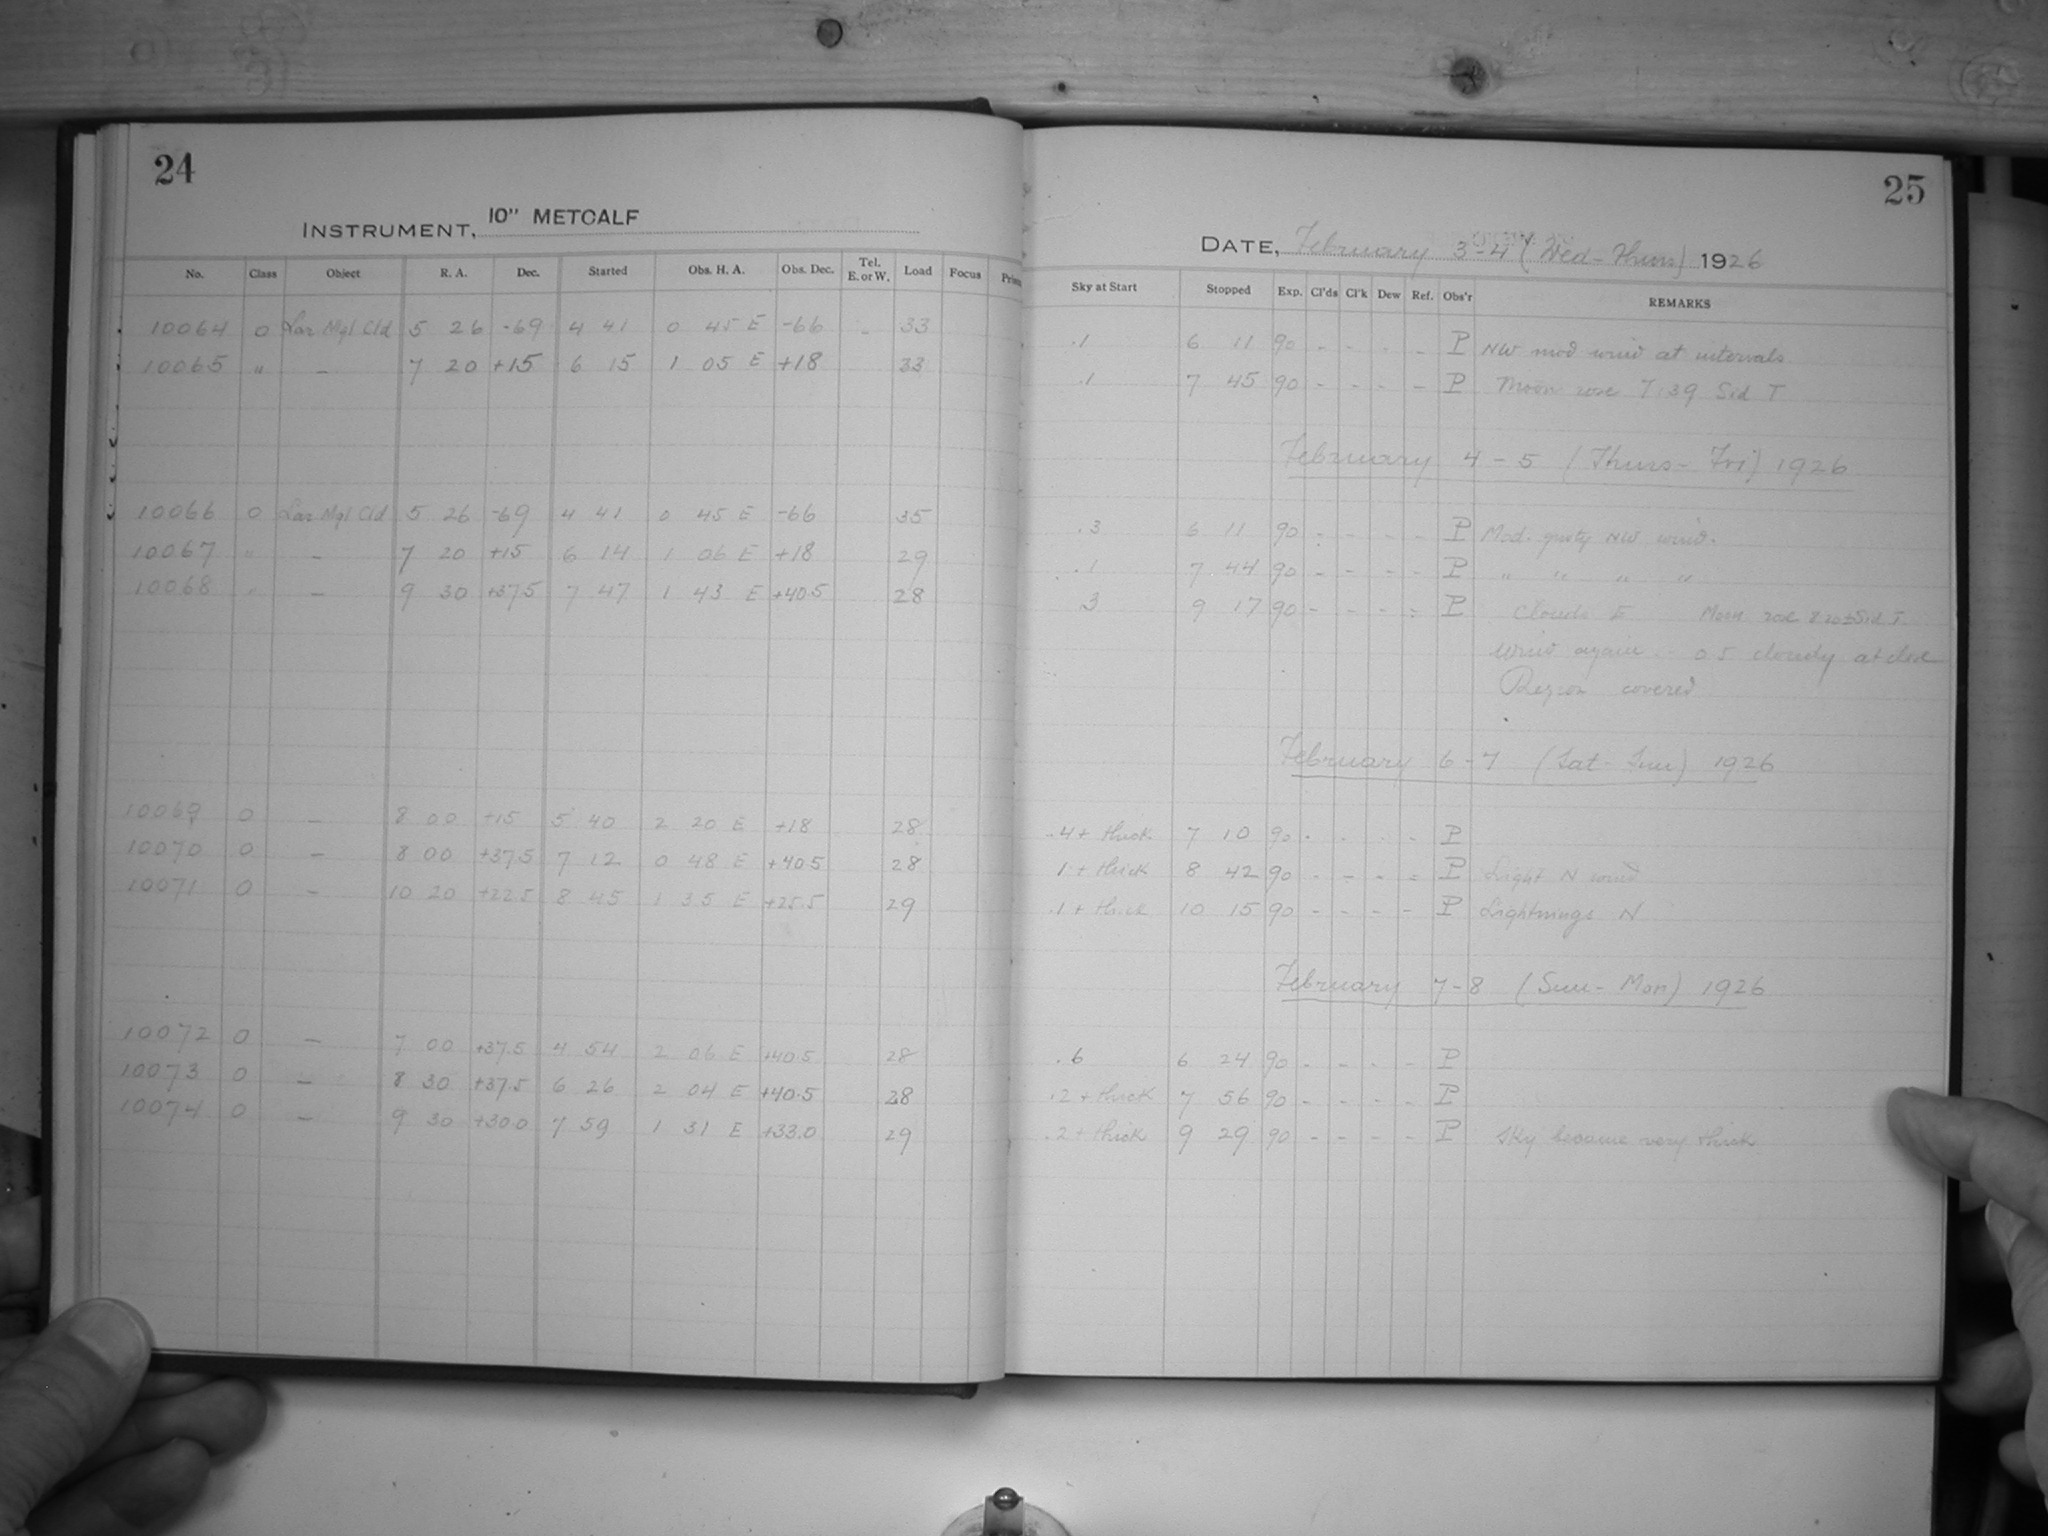 24
INSTRUMENT, 10" METCALF
No. Class Object R. A. Dec. Started Obs. H. A. Obs. Dec. Tel. E. or W. Load Focus
10064 O Lar Mgl Cld 5 26 -69 4 41 0 45 E -66 33
10065 " – 7 20 +15 6 15 1 05 E +18 33
10066 O Lar Mgl Cld 5 26 -69 4 41 0 45 E -66 35
10067 " – 7 20 +15 6 14 1 06 E +18 29
10068 " – 9 30 +37.5 7 47 1 43 E +40.5 28
10069 O – 8 00 +15 5 40 2 20 E +18 28
10070 O – 8 00 +37.5 7 12 0 48 E +40.5 28
10071 O – 10 20 +22.5 8 45 1 35 E +25.5 29
10072 O – 7 00 +37.5 4 54 2 06 E +40.5 28
10073 O – 8 30 +37.5 6 26 2 04 E +40.5 28
10074 O – 9 30 +30.0 7 59 1 31 E +33.0 29
25
DATE, February 3-4 (Wed-Thurs) 1926
Sky at Start Stopped Exp. Cl'ds Cl'k Dew Ref. Obs'r REMARKS
.1 6 11 90 - - - - P NW mod wind at intervals.
.1 7 45 90 - - - - P Moon rose 7:39 Sid T
February 4-5 (Thurs-Fri) 1926
.3 6 11 90 - - - - P Mod. gusty NW wind.
.1 7 44 90 - - - - P " " " "
.3 9 17 90 - - - - P Clouds E Moon rose 8 20 ± Sid T.
wind again - 0.5 cloudy at close
Region covered
February 6-7 (Sat-Sun) 1926
.4 + thick 7 10 90 - - - - P
.1 + thick 8 42 90 - - - - P Light N wind
.1 + thick 10 15 90 - - - - P Lightnings N
February 7-8 (Sun-Mon) 1926
.6 6 24 90 - - - - P
.2 + thick 7 56 90 - - - - P
.2 + thick 9 29 90 - - - - P Sky became very thick